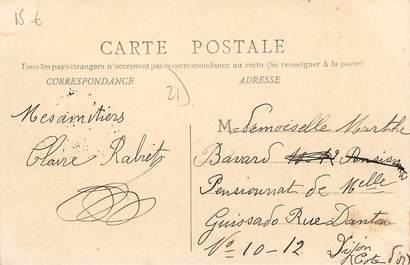 15 €
CARTE POSTALE
Tous les pays étrangers n'acceptent pas la correspondance au recto (Se renseigner à la poste)
CORRESPONDANCE
ADRESSE
21)
Mes amitiers
Claire Rabiet
Mademoiselle Marthe
Bavard
Pensionnat de Melle
Guissado Rue Danton
No 10-12 Dijon
Cote d'or